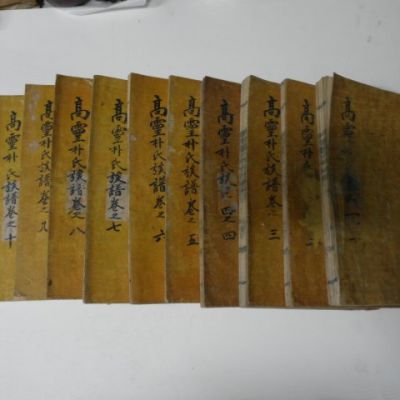 高靈
高靈朴 二
高靈朴氏族譜卷之三
高靈朴氏族 之四
高靈朴氏族譜卷之五
高靈朴氏族譜卷之六
高靈朴氏族譜卷之七
高靈朴氏族譜卷之八
高靈朴氏族譜卷之九
高靈朴氏族譜卷之十